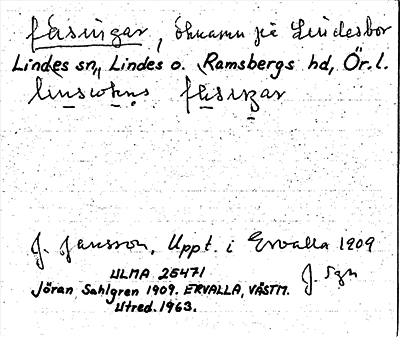 fäsingar, öknamn på Lindesbor
Lindes sn, Lindes o. Ramsbergs hd, Ör.l.
fäsigar
J. Jansson. Uppt. i Ervalla 1909
J. Sgn
ULMA 25471
Jöran Sahlgren 1909. ERVALLA, VÄSTM.
Utred. 1963.